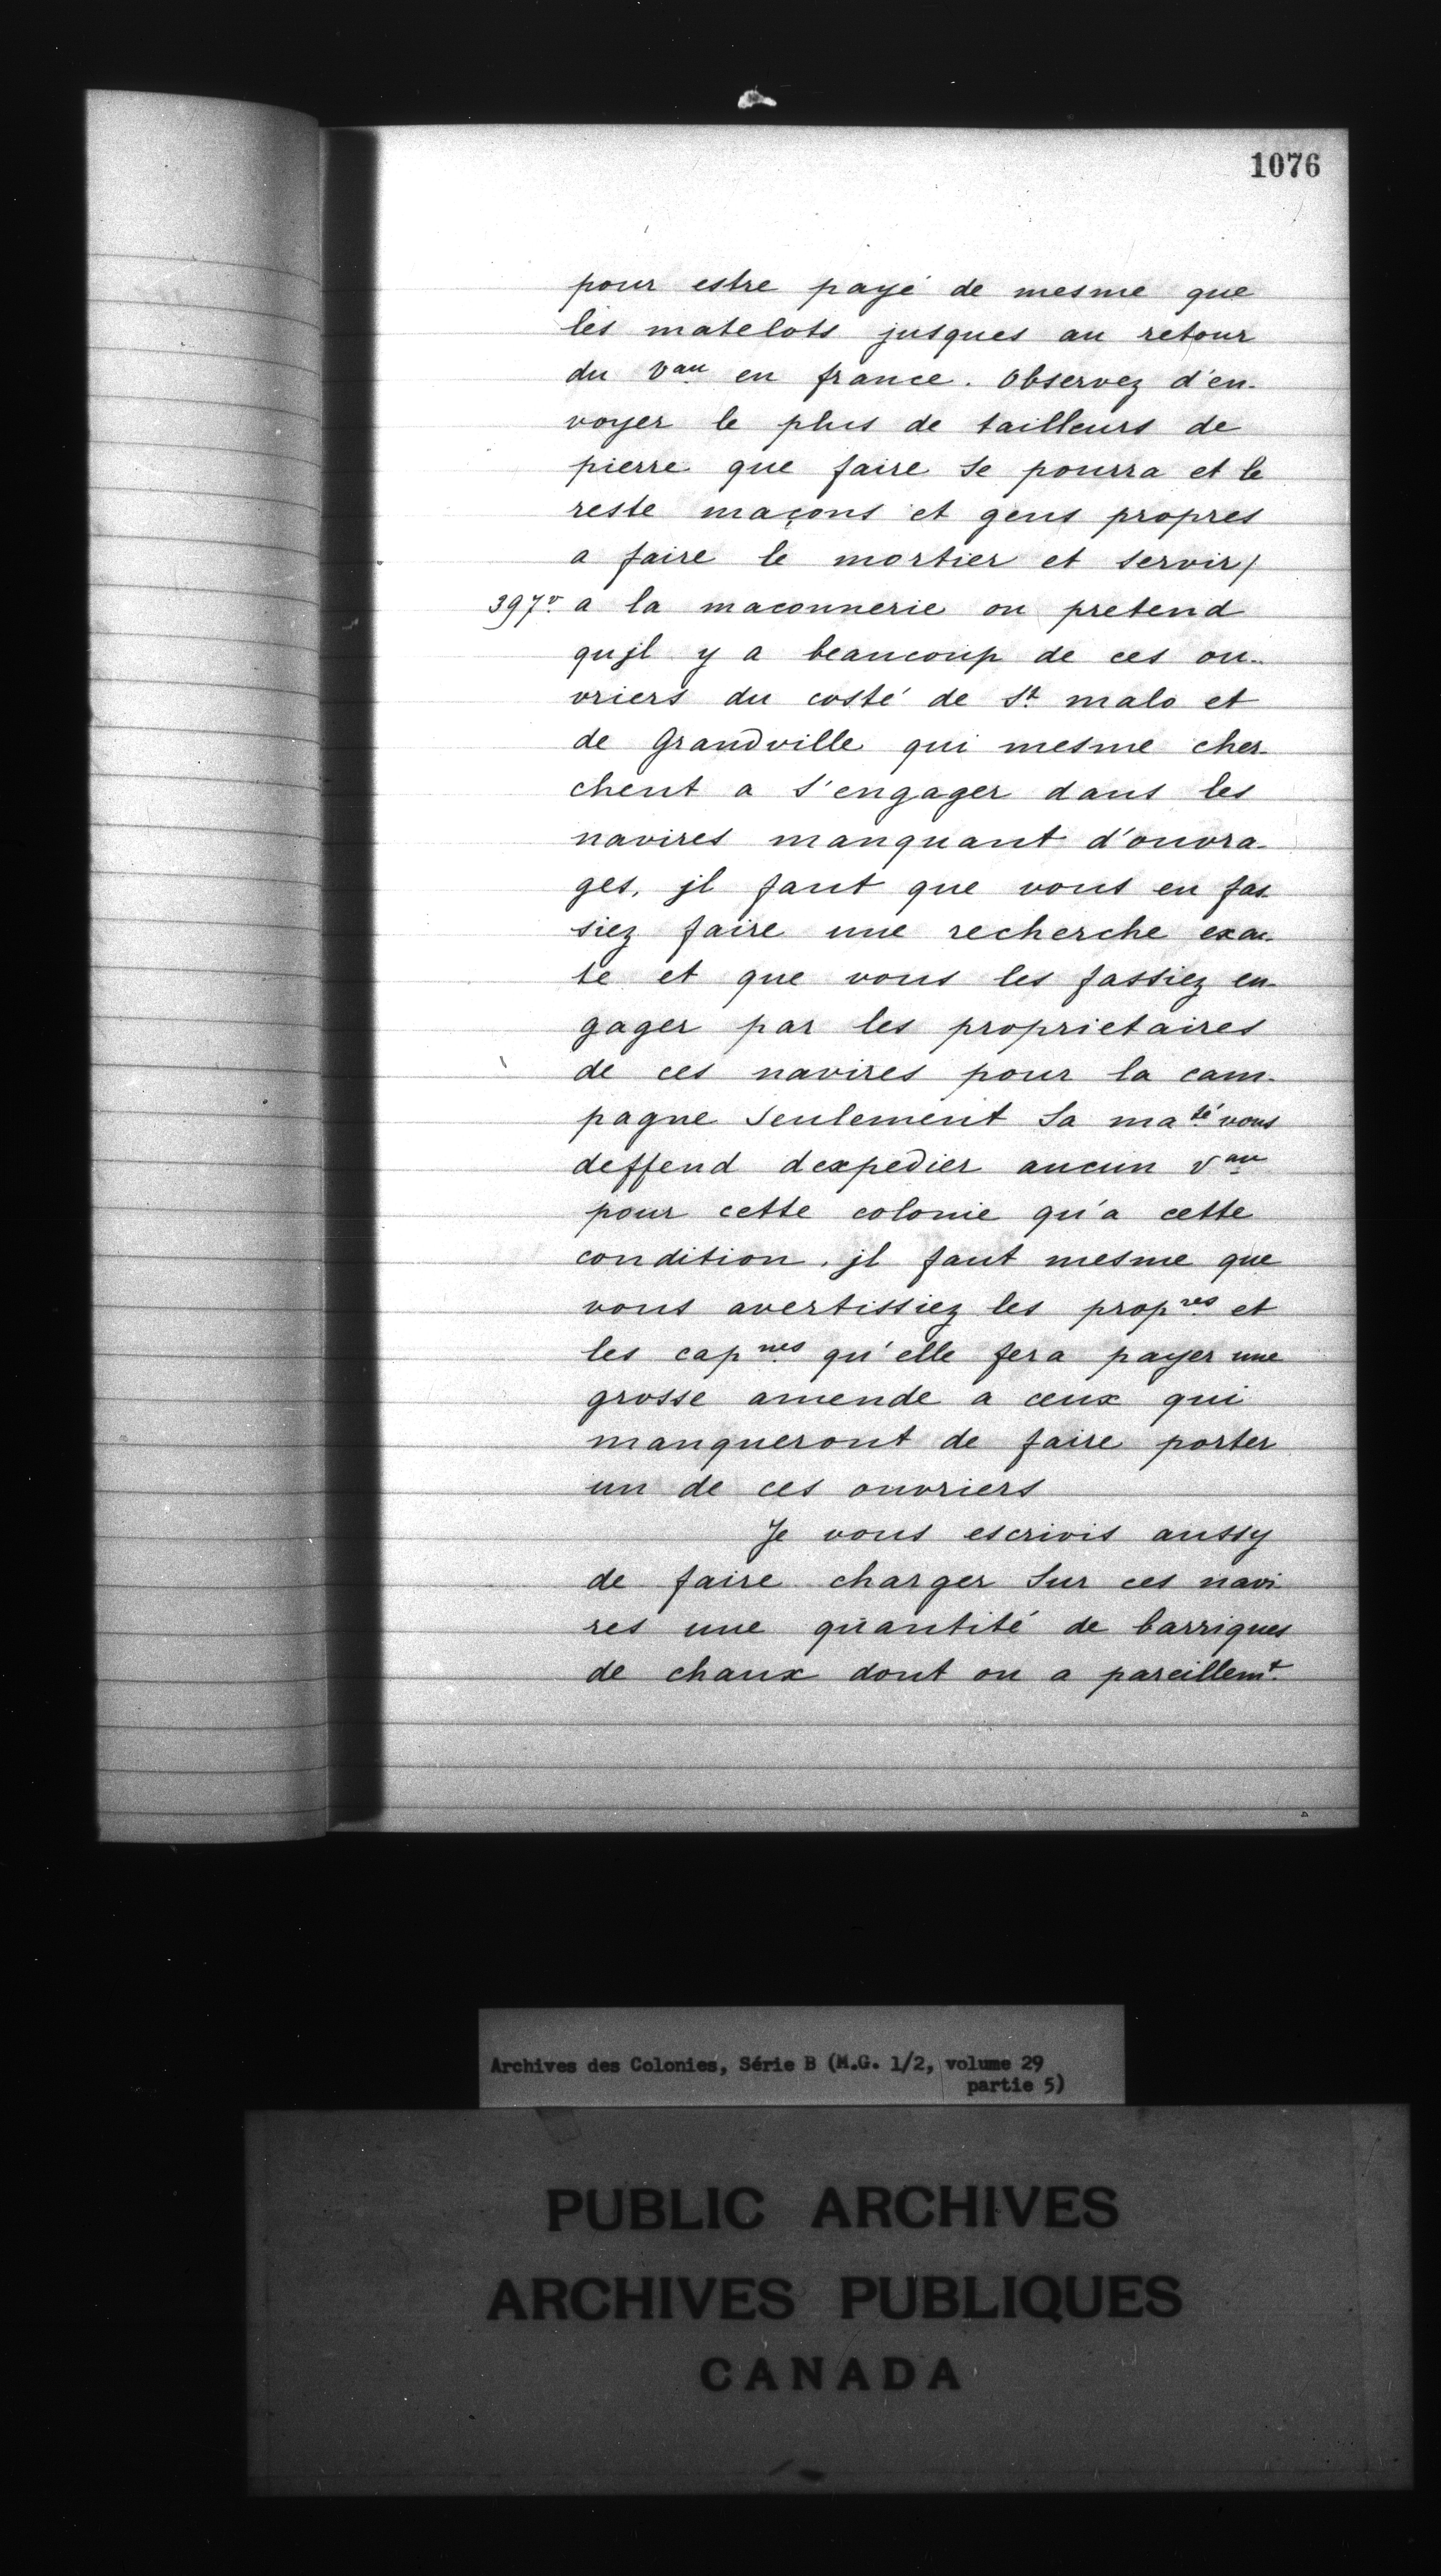 1076
pour estre payé de mesme que
les matelots jusques au retour
du Vau en france. Observez d'en-
voyer le plus de tailleurs de
pierre que faire se pourra et le
reste maçons et gens propres
a faire le mortier et servir/
397v. a la maconnerie on pretend
qujl y a beaucoup de ces ou-
vriers du costé de St malo et
de Grandville qui mesme cher-
chent a s'engager dans les
navires manquant d'ouvra-
ges, jl faut que vous en fas-
siez faire une recherche exac-
te et que vous les fassiez en-
gager par les proprietaires
de ces navires pour la cam-
pagne seulement Sa maté vous
deffend dexpedier aucun vau
pour cette colonie qu'a cette
condition, jl faut mesme que
vous avertissiez les propres et
les capnes qu'elle fera payer une
grosse amende a ceux qui
manqueront de faire porter
un de ces ouvriers
Je vous escrivis aussy
de faire charger sur ces navi
res une quantité de barriques
de chaux dont on a pareillemt.
Archives des Colonies, Série B (M.G. 1/2, volume 29
partie 5)
PUBLIC ARCHIVES
ARCHIVES PUBLIQUES
CANADA